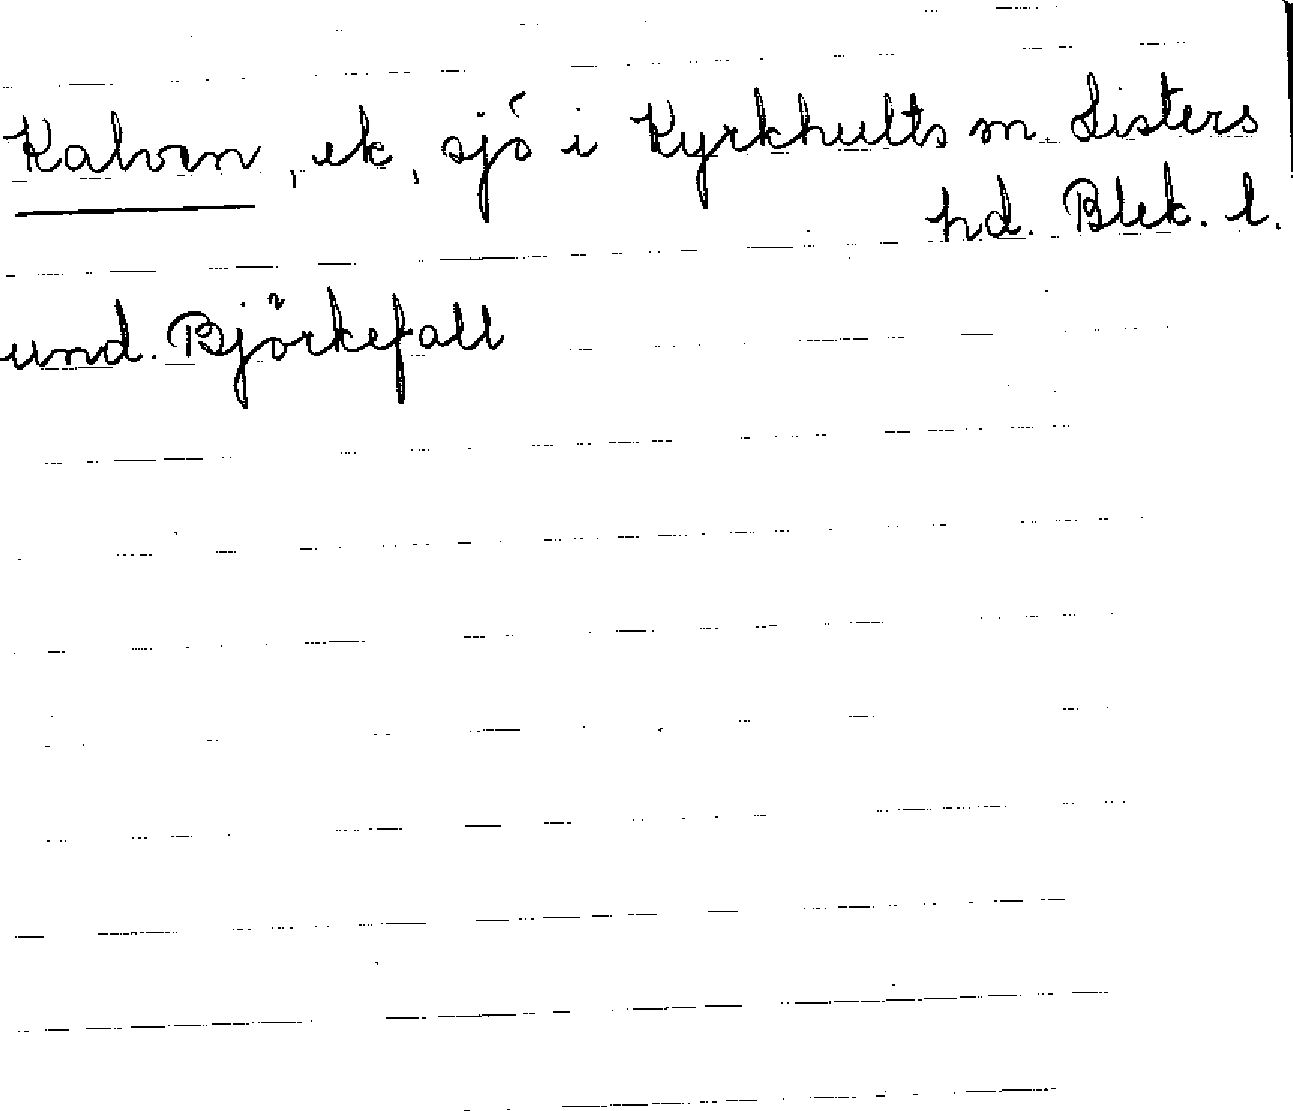 Kalven, ek, sjö i Kyrkhults sn. Listers
hd. Blek. l.
und. Björkefall